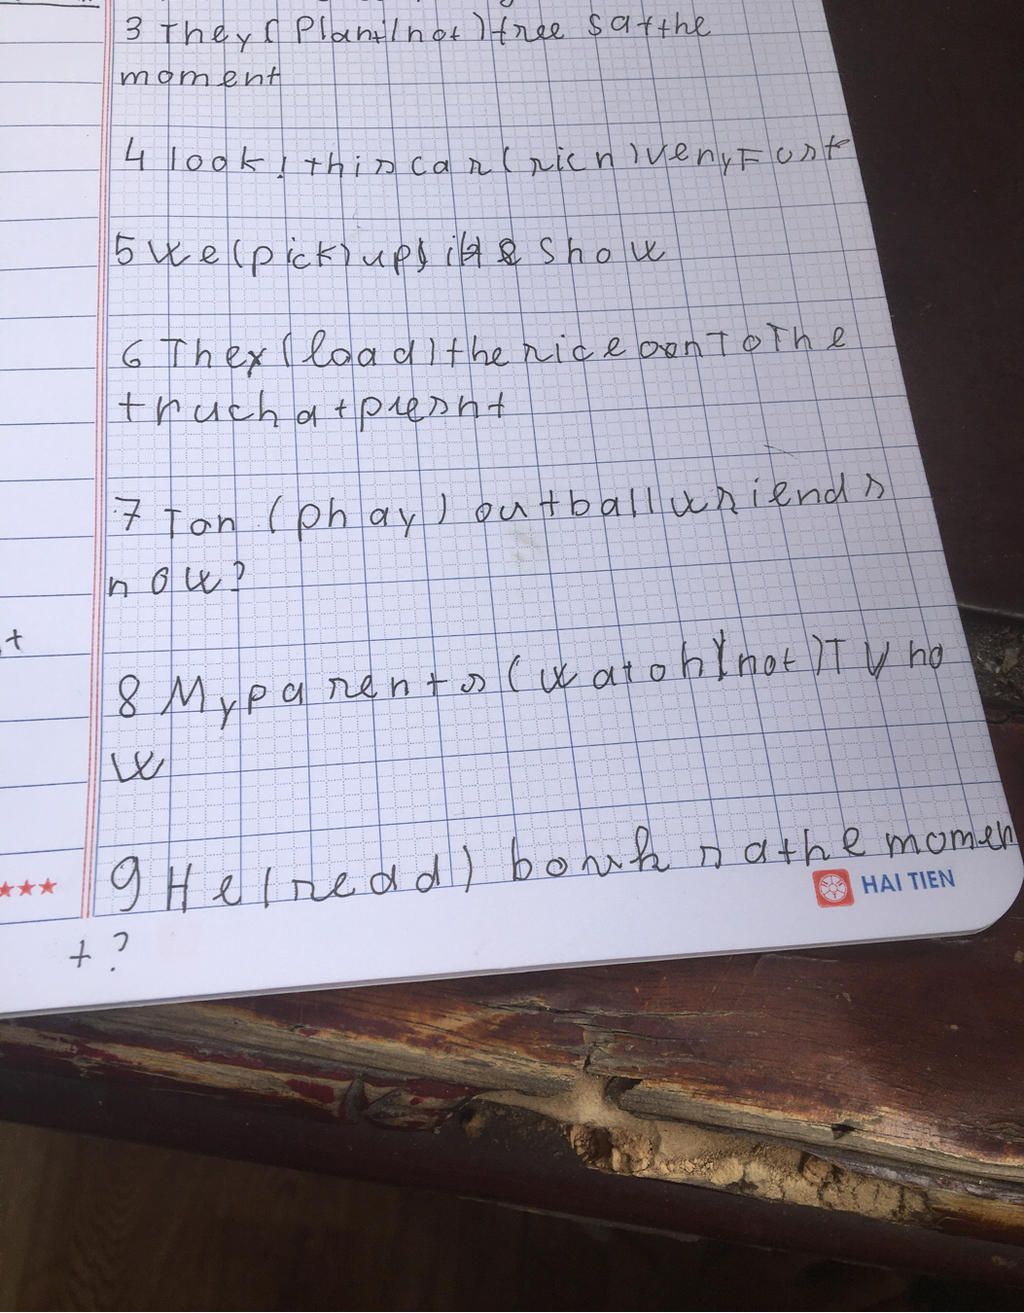 3 They (Plant/not) tree s at the
moment
4 look! this car (rich) very Fast
5 We (pick) up show
6 They (load) the rice oon To The
truch at presnt
7 Tan (phay) outball wriends
now?
8 My parents (watoh/not) TV no
w
9 He (read) at the momen
t?
HAI TIEN